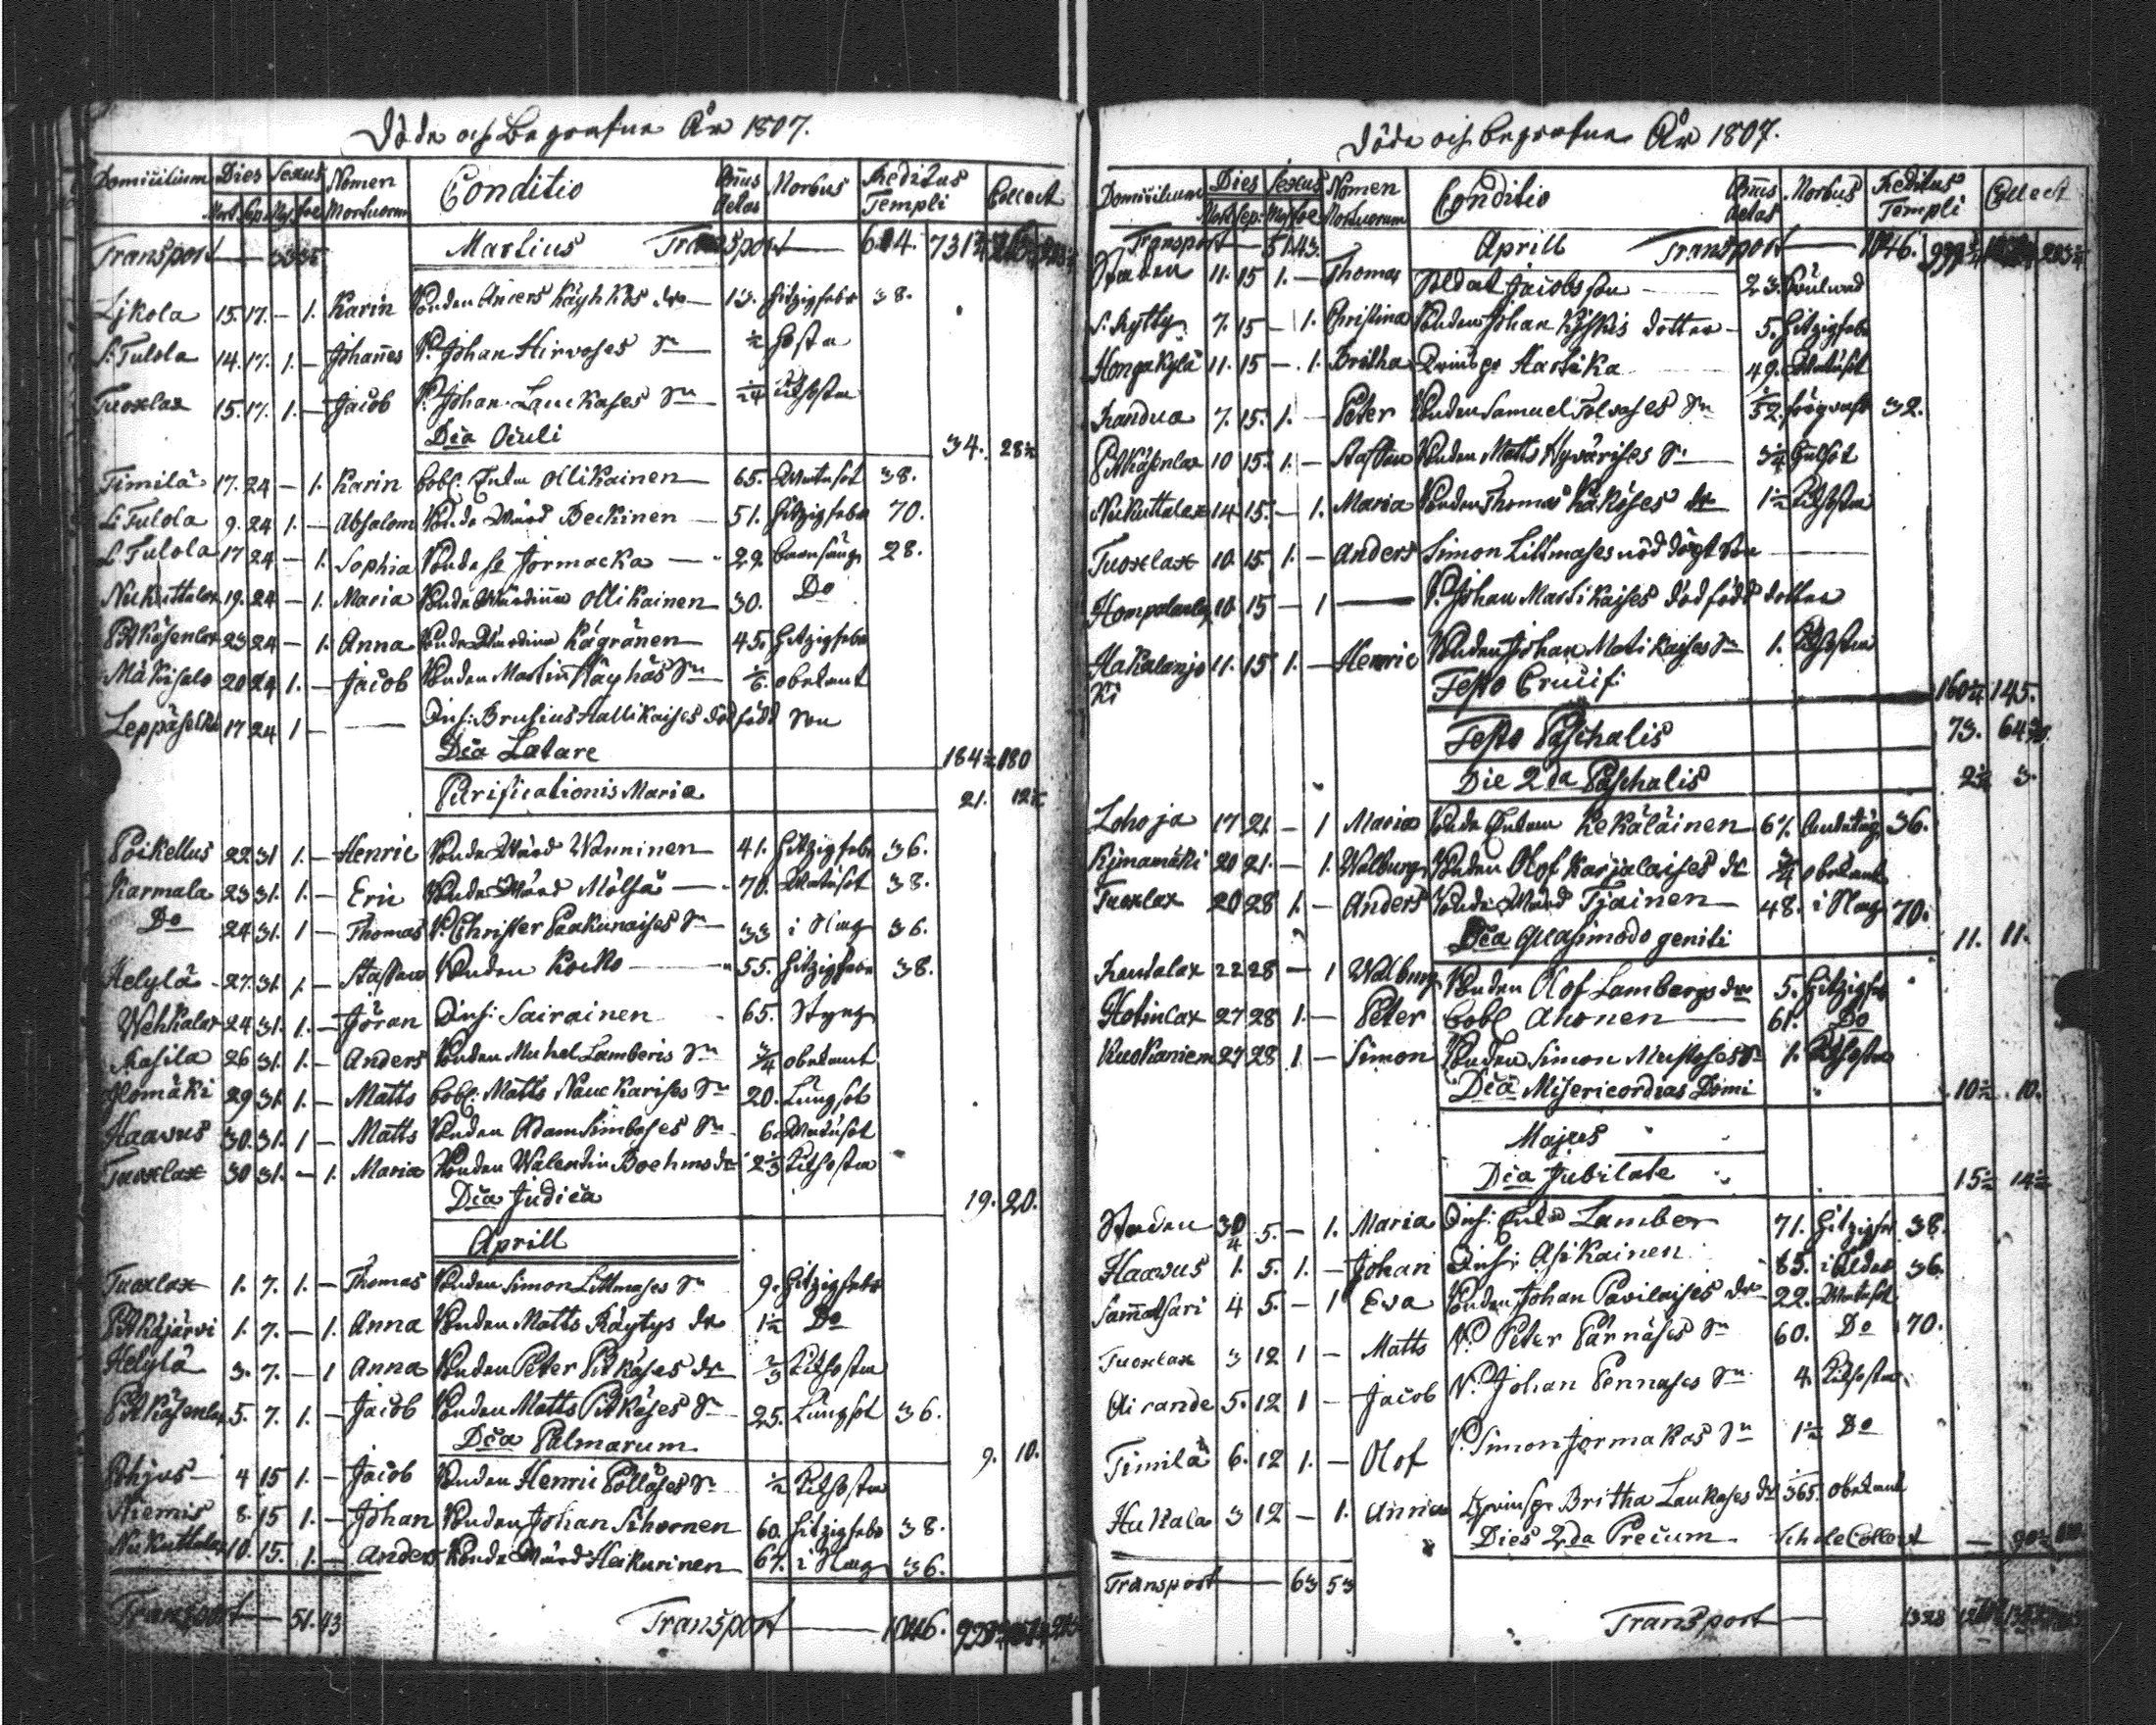 Döde och Begrafne År 1807.
Domicilium Dies Sexus Nomen Conditio Annus Morbus Reditus Collect
Mort. Sep. Ma. foe. Mortuorum Aetas Templi
Transport Martius Transport 6 4. 731
Ljkola 15. 17. – 1. Karin Bonden Anders Käyhkös dr 13. Hitzig feber 38.
L. Tulola 14. 17. 1. – Johannes B. Johan Hirvoses Sn ½ Hosta
Tuoxlax 15. 17. 1. – Jacob B. Johan Laukases Sn Kikhosta
Dca Oculi 34. 28½
Timilä 17. 24 – 1. Karin Bobl. Enka Ollikainen 65. Mattsot 38.
L: Tulola 9. 24 1. – Absalom Bonde Wärd Beckinen 51. Hitzig feber 70.
L. Tulola 17 24 – 1. Sophia Bonde h. Jormacka 29. Barnsäng 28.
Nukuttalax 19. 24 – 1. Maria Bonde Wärdinna Ollikainen 30. Do
Pitkäsenlax 23 24 – 1. Anna Bonde Wärdinna Kägränen 45. Hitzig feber
Mäkisalo 20 24 1. – Jacob Bonden Martin Käyhäs Sn obekant
Leppäselkä 17 24 1 – Inh: Brusius Hallikaises död född Son
Dca Lætare 184½ 180
Purificationis Maria 21. 12½
Poikellus 22 31 1. – Henric Bonde Wärd Wänninen 41. Hitzig feber 36.
Karmala 23 31. 1. – Eric Bonde Wärd Mölsä 70. Mattsot 38.
Do 24 31. 1 – Thomas B. Christer Paakunaises Sn 33 i Slag 36.
Helylä 27. 31. 1. – Staffan Bonden Kocko 55. Hitzig feber 38.
Wehkalax 24. 31. 1. – Jöran Inh: Sairainen 65. Styng
Rasila 26 31. 1. – Anders Bonden Michel Lamberis Sn ¾ obekant
Ilomäki 29 31. 1. – Matts Bobl: Matts Naukkarises Sn 20. Lungsot
Haawus 30. 31. 1 – Matts Bonden Adam Simboses Sn 6. Mattsot
Tuoxlax 30 31. – 1. Maria Bonden Walentin Boehms dr Kikhosta
Dca Judica 19. 20.
Aprill
Tuoxlax 1. 7. 1. – Thomas Bonden Simon Littmases Sn 9. Hitzig feber
Pitkäjärvi 1. 7. – 1. Anna Bonden Matts Räytys dr 1½ Do
Helylä 3. 7. – 1 Anna Bonden Peter Pitkäses dr Kikhosta
Pitkäsenlax 5. 7. 1. – Jacob Bonden Matts Pitkäses Sn 25. Lungsot 36.
Dca Palmarum 9. 10.
Pohjus 4 15 1. – Jacob Bonden Henric Pölläses Sn ½ Kikhosta
Niemis 8. 15 1. – Johan Bonden Johan Sihvonen 60. Hitzig feber 38.
Nukuttalax 10. 15. 1. – Anders Bonde Wärd Heikurinen 67. i Slag 36.
Transport 51. 43 Transport 1046.
Döde och Begrafne År 1807.
Domicilium Dies Sexus Nomen Conditio Annus Morbus Reditus Collect
Mort. Sep. Ma. foe. Mortuorum Aetas Templi
Transport 51. 43. Aprill Transport 1046.
Staden 11. 15 1. – Thomas Soldat Jacobs son 23.
S. Rytty 7. 15 – 1. Christina Bonden Johan Kiiskis dotter 5. Hitzig feber
Hongakylä 11. 15 – 1. Britha Qvinsp. Hartika 49. Mattsot
Kandua 7. 15. 1. – Peter Bonden Samuel Tolvases Sn 32.
Pitkäsenlax 10 15. 1. – Staffan Bonden Matts Hyvärises Sn Gulsot
Nukuttalax 14 15. – 1. Maria Bonden Thomas Käköses dr 1½ Kikhosta
Tuoxlax 10. 15. 1. – Anders Simon Littmases nöd döpt Son
Hompalanlax 10. 15 – 1 B. Johan Martikaises död född dotter
Hakalanjo 11. 15 1. – Henric Bonden Johan Matikaises Sn 1. Kikhosta
ki Festo Crucif: 160¼ 145.
Festo Paschalis 73. 64
Die 2da Paschalis 2½ 3.
Lohoja 17 21. – 1 Maria Bonde Enkan Kekäläinen 67. Andtäp. 36.
Kymamäki 20 21. – 1. Walborg Bonden Olof Karjalaises dr ¾ obekant
Tuoxlax 20 28 1. – Anders Bonde Wärd Tjainen 48. i Slag 70.
Dca Quasimodo geniti 11. 11.
Kentalax 22 28 – 1 Walborg Bonden Olof Lambergs dr 5. Hitzig feb
Hotinlax 27 28 1. – Peter Bobl Ahonen 61. Do
Kuokaniem 27 28 1 – Simon Bonden Simon Mustoses Sn 1. Kikhosta
Dca Misericordias Domi 10½. 10.
Majus
Dca Jubilate 15½ 14½
Staden 30/4 5. – 1. Maria Inh: Enka Lamber 71. Hitzig feb 38.
Haawus 1. 5. 1. – Johan Inh: Asikainen 85. i Ålder 36.
Sammatsari 4 5. – 1 Eva Bonden Johan Pavilaises dr 22. Mattsot
Tuoxlax 3 12 1 – Matts B. Peter Pärnäses Sn 60. Do 70.
Airande 5. 12 1 – Jacob B. Johan Pennases Sn 4. Kikhosta
Timilä 6. 12 1. – Olof B. Simon Jormakas Sn 1½ Do
Hukkala 3 12 – 1. Anna Qvinsp. Britha Laukases dr obekant
Dies 2da Precum Schole Collect
Transport 63 53
Transport 1328